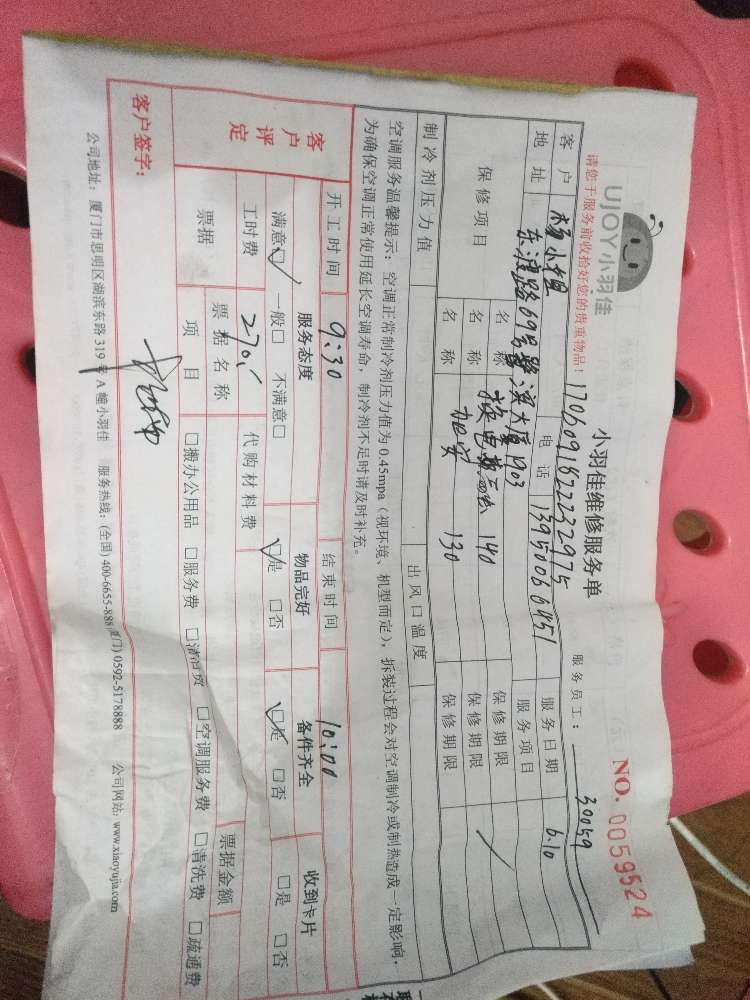 UJOY小羽佳
小羽佳维修服务单
NO. 0059524
请您于服务前收拾好您的贵重物品!
170609182232975
服务员工: 30059
客户 杨小姐 电话 13950066451 服务日期 6.10
地址 东渡路69号 大厦1903 服务项目
保修项目 名称 140 保修期限
名称 换 保修期限
名称 加 130 保修期限
制冷剂压力值 出风口温度
空调服务温馨提示: 空调正常制冷剂压力值为0.45mpa (视环境、机型而定), 拆装过程会对空调制冷或制热造成一定影响,
为确保空调正常使用延长空调寿命, 制冷剂不足时请及时补充。
开工时间 9:30 结束时间 10:00
客户评定 服务态度 物品完好 备件齐全 收到卡片
满意☑ 一般□ 不满意□ ☑是 □否 ☑是 □否 □是 □否
工时费 270 代购材料费
票据 票据名称 票据金额
项目 □搬办公用品 □服务费 □清洁费 □空调服务费 □清洗费 □疏通费
客户签字:
公司地址: 厦门市思明区湖滨东路319号A幢小羽佳 服务热线: (全国) 400-6655-888 (厦门) 0592-5178888 公司网站: www.xiaoyujia.com